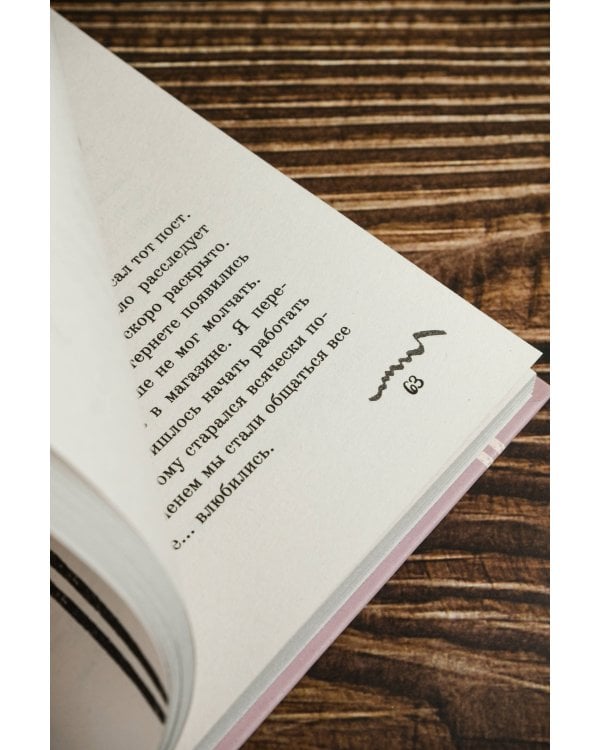 сал тот пост.
ло расследует
скоро раскрыто.
тернете появились
ще не мог молчать.
в магазине. Я пере-
ишлось начать работать
ому старался всячески по-
енем мы стали общаться все
... влюбились.
63